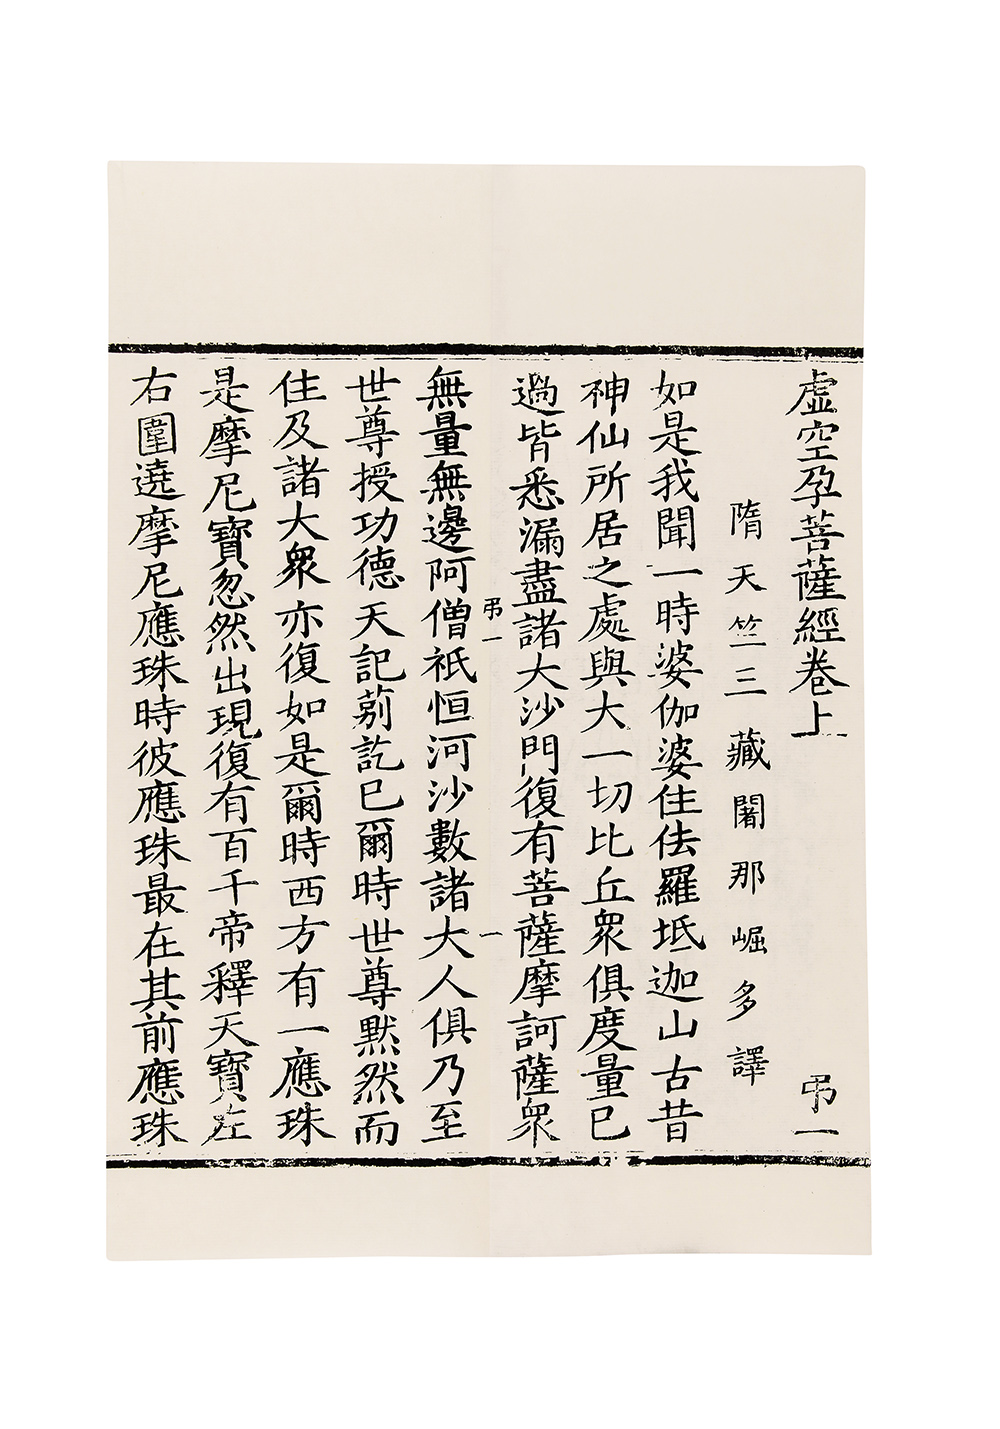 虛空孕菩薩經卷上 弔一
隋天竺三藏闍那崛多譯
如是我聞一時婆伽婆住佉羅坻迦山古昔
神仙所居之處與大一切比丘眾俱度量已
過皆悉漏盡諸大沙門復有菩薩摩訶薩眾
弔一 一
無量無邊阿僧祇恒河沙數諸大人俱乃至
世尊授功德天記莂訖已爾時世尊默然而
住及諸大眾亦復如是爾時西方有一應珠
是摩尼寶忽然出現復有百千帝釋天寶左
右圍遶摩尼應珠時彼應珠最在其前應珠